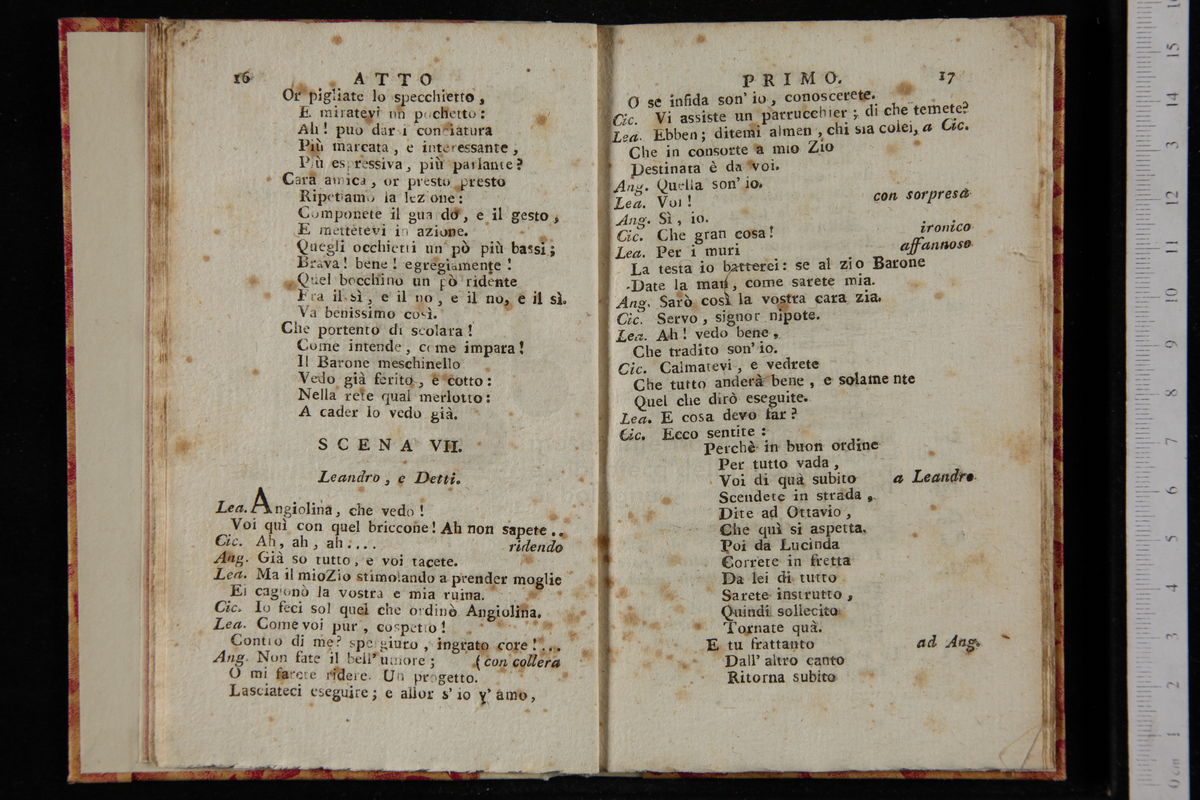 16 ATTO
Or pigliate lo specchietto,
E miratevi un pochetto:
Ah! può dar i conciatura
Più marcata, e interessante,
Più espressiva, più parlante?
Cara amica, or presto presto
Ripetiamo la lezione:
Componete il guardo, e il gesto,
E mettetevi in azione.
Quegli occhietti un pò più bassi;
Brava! bene! egregiamente!
Quel bocchino un pò ridente
Fra il sì, e il no, e il no, e il sì.
Va benissimo così.
Che portento di scolara!
Come intende, come impara!
Il Barone meschinello
Vedo già ferito, e cotto:
Nella rete qual merlotto:
A cader lo vedo già.
SCENA VII.
Leandro, e Detti.
Lea. Angiolina, che vedo!
Voi quì con quel briccone! Ah non sapete..
Cic. Ah, ah, ah.... ridendo
Ang. Già so tutto, e voi tacete.
Lea. Ma il mio Zio stimolando a prender moglie
Ei cagionò la vostra e mia ruina.
Cic. Io feci sol quel che ordinò Angiolina.
Lea. Come voi pur, cospetto!
Contro di me? spergiuro, ingrato core!...
Ang. Non fate il bell'umore; (con collera
O mi farete ridere. Un progetto.
Lasciateci eseguire; e allor s' io v' amo,
PRIMO. 17
O se infida son' io, conoscerete.
Cic. Vi assiste un parrucchier; di che temete?
Lea. Ebben; ditemi almen, chi sia colei, a Cic.
Che in consorte a mio Zio
Destinata è da voi.
Ang. Quella son' io.
Lea. Voi! con sorpresa
Ang. Sì, io.
Cic. Che gran cosa! ironico
Lea. Per i muri affannoso
La testa io batterei: se al zio Barone
Date la man, come sarete mia.
Ang. Sarò così la vostra cara zia.
Cic. Servo, signor nipote.
Lea. Ah! vedo bene,
Che tradito son' io.
Cic. Calmatevi, e vedrete
Che tutto anderà bene, e solamente
Quel che dirò eseguite.
Lea. E cosa devo far?
Cic. Ecco sentite:
Perchè in buon ordine
Per tutto vada,
Voi di quà subito a Leandro
Scendete in strada,
Dite ad Ottavio,
Che quì si aspetta.
Poi da Lucinda
Correte in fretta
Da lei di tutto
Sarete instrutto,
Quindi sollecito
Tornate quà.
E tu frattanto ad Ang.
Dall' altro canto
Ritorna subito